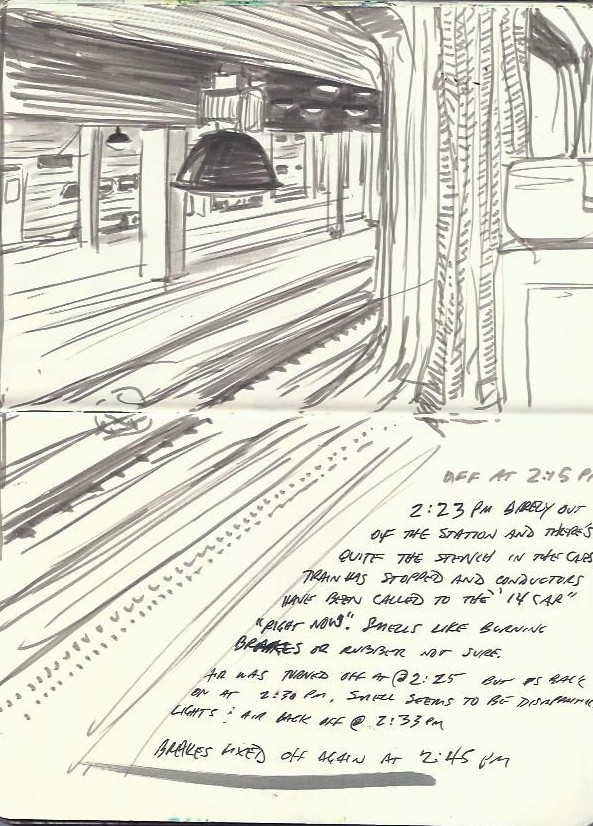 OFF AT 2:45 P
2:23 PM BARELY OUT
OF THE STATION AND THERE'S
QUITE THE STENCH IN THE CARS
TRAIN HAS STOPPED AND CONDUCTORS
HAVE BEEN CALLED TO THE "14 CAR"
"RIGHT NOW". SMELLS LIKE BURNING
BRAKES OR RUBBER NOT SURE.
AIR WAS TURNED OFF AT @ 2:25 BUT IS BACK
ON AT 2:30 PM, SMELL SEEMS TO BE
LIGHTS & AIR BACK OFF @ 2:33 PM
BRAKES FIXED OFF AGAIN AT 2:45 PM